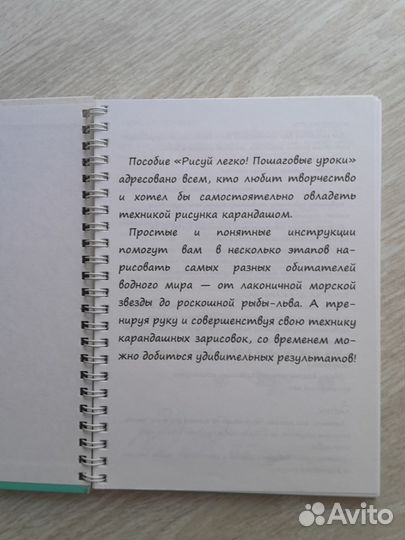 Пособие «Рисуй легко! Пошаговые уроки»
адресовано всем, кто любит творчество
и хотел бы самостоятельно овладеть
техникой рисунка карандашом.
Простые и понятные инструкции
помогут вам в несколько этапов на-
рисовать самых разных обитателей
водного мира — от лаконичной морской
звезды до роскошной рыбы-льва. А тре-
нируя руку и совершенствуя свою технику
карандашных зарисовок, со временем мо-
жно добиться удивительных результатов!
Avito